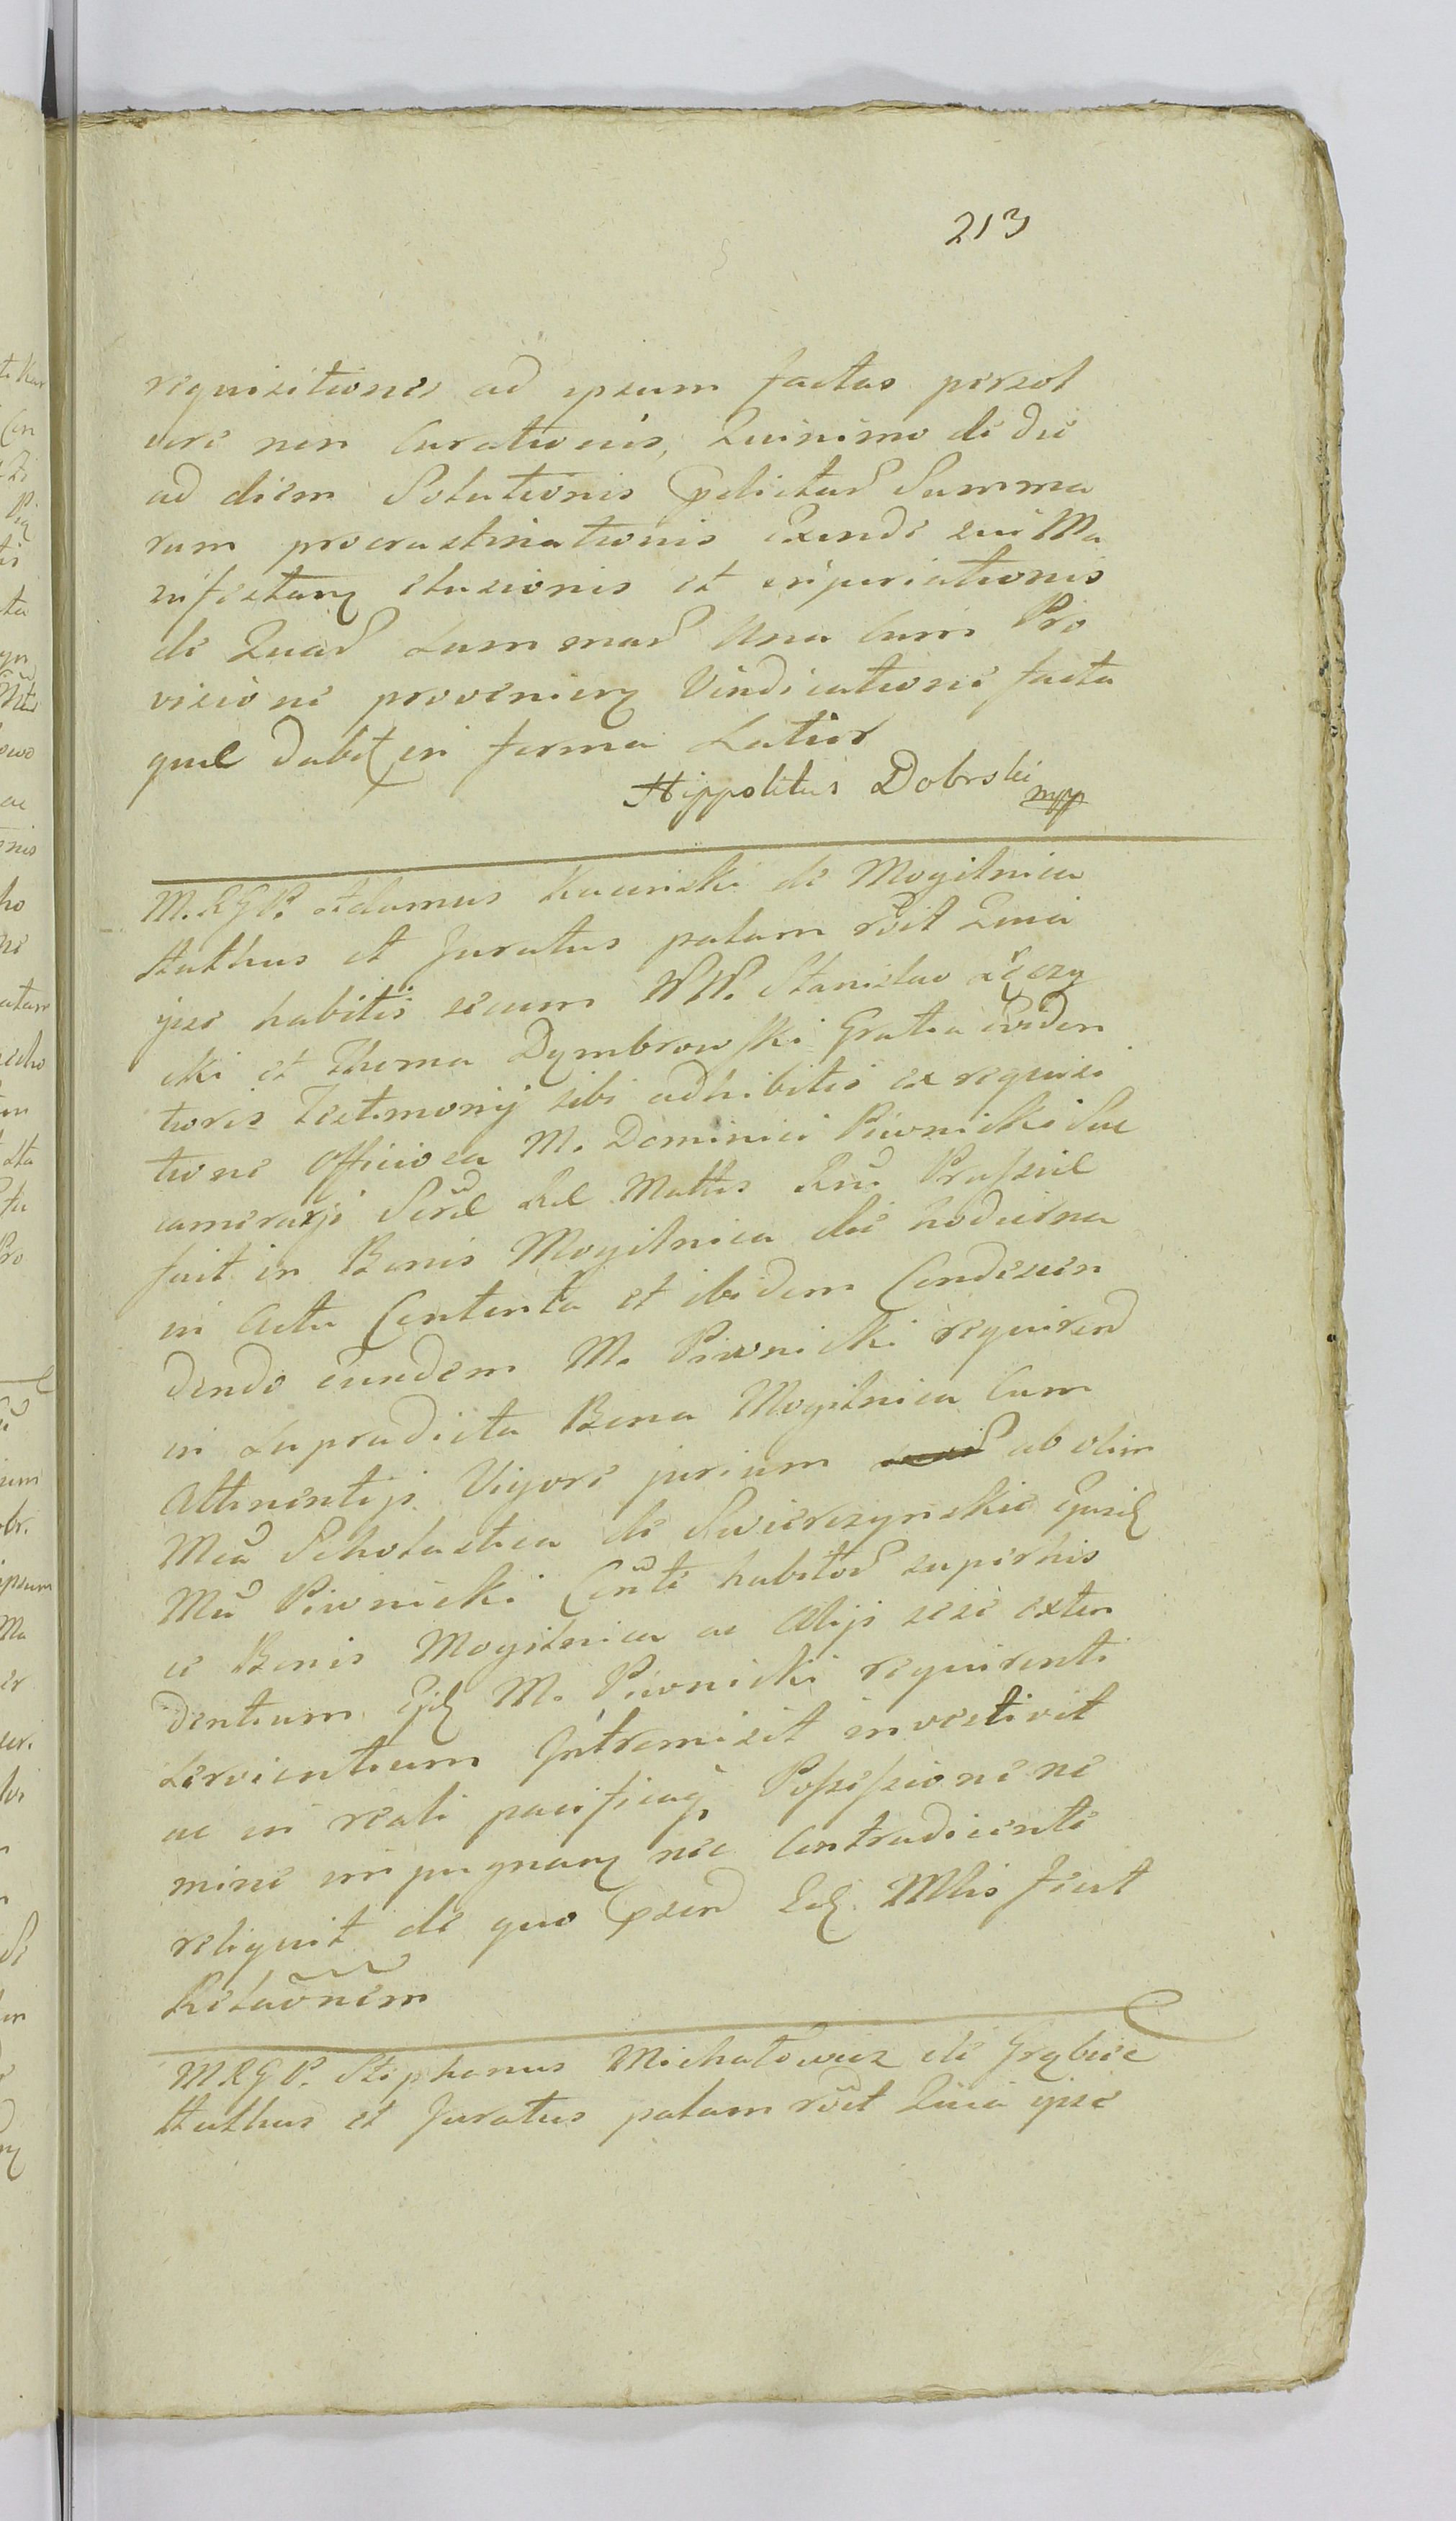 213
requisitiones ad ipsum factas persol
vere non Curationis, Quinimo de die
ad diem Solutionis pdictar Summa
rum procrastinationis Exinde sui Ma
nifestaq elusionis et injuriationis
de Quar Summar Una Cum Pro
visione provenienq Vindicatione facta
que dabit in forma Latior
Hippolitus Dobrski mpp
M.R.G.P. Adamus Kucinski de Mogilnica
Stathus et Juratus palam rcit Quia
ipse habitis secum NN. Stanislao Łęczy
cki et Thoma Dymbrowski Gratia Eviden
tioris Testimonij sibi adhibitis ex requisi
tione Officiosa M. Dominici Piwnicki Suc
camerarij Sere Rel Mattis Rni Prussiae
fuit in Bonis Mogilnica die hodierna
in Actu Contenta et ibidem Condescen
dendo eundem M. Piwnicki requirend
in Supradicta Bona Mogilnica Cum
Attinentijs Vigore jurium ab olim
Mca Scholastica de Swierczynskie
Mci Piwnicki Cnte habitor superhis
ce Bonis Mogilnica ac Alijs sese exten
dentium M. Piwnicki requirenti
Servientium Intromisit investivit
ac in reali pacificaq Possessione ne
mine impugnanq nec Contradicente
reliquit de quo psen Mlis fecit
Relaonem
MRGP. Stephanus Michałowicz de Grąbiec
Stathus et Juratus palam rcit Quia ipse